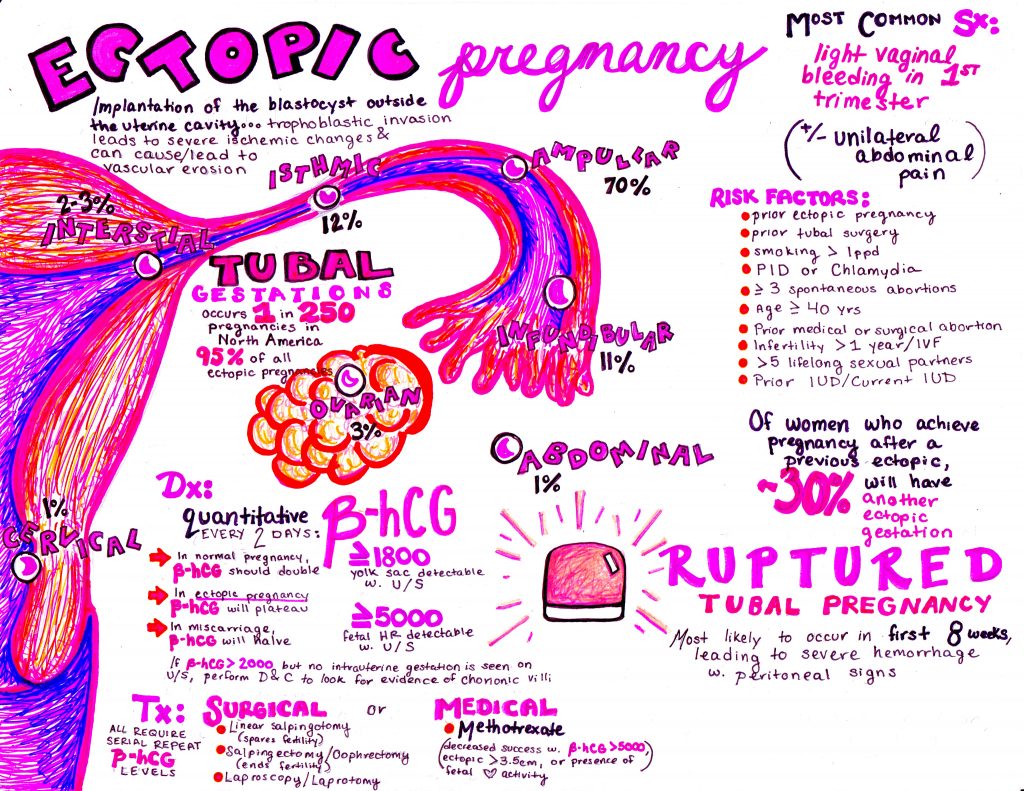 ECTOPIC pregnancy
Implantation of the blastocyst outside
the uterine cavity... trophoblastic invasion
leads to severe ischemic changes &
can cause/lead to
vascular erosion
MOST COMMON Sx:
light vaginal
bleeding in 1ST
trimester
(+/- unilateral
abdominal
pain)
ISTHMIC
12%
AMPULLAR
70%
2-3%
INTERSTIAL
INFUNDIBULAR
11%
TUBAL
GESTATIONS
occurs 1 in 250
pregnancies in
North America
95% of all
ectopic pregnancies
OVARIAN
3%
ABDOMINAL
1%
1%
CERVICAL
RISK FACTORS:
prior ectopic pregnancy
prior tubal surgery
smoking > 1ppd
PID or Chlamydia
≥ 3 spontaneous abortions
Age ≥ 40 yrs
Prior medical or surgical abortion
Infertility > 1 year/IVF
>5 lifelong sexual partners
Prior IUD/Current IUD
Of women who achieve
pregnancy after a
previous ectopic,
~30% will have
another
ectopic
gestation
Dx:
quantitative
EVERY 2 DAYS:
β-hCG
In normal pregnancy,
β-hCG should double
In ectopic pregnancy
β-hCG will plateau
In miscarriage,
β-hCG will halve
≥1800
yolk sac detectable
w. U/S
≥5000
fetal HR detectable
w. U/S
If β-hCG > 2000 but no intrauterine gestation is seen on
U/S, perform D&C to look for evidence of chorionic villi
RUPTURED
TUBAL PREGNANCY
Most likely to occur in first 8 weeks,
leading to severe hemorrhage
w. peritoneal signs
Tx:
ALL REQUIRE
SERIAL REPEAT
β-hCG
LEVELS
SURGICAL or MEDICAL
Linear salpingotomy
(spares fertility)
Salpingectomy/Oophrectomy
(ends fertility)
Laproscopy/Laprotomy
Methotrexate
(decreased success w. β-hCG >5000,
ectopic >3.5cm, or presence of
fetal ♡ activity)